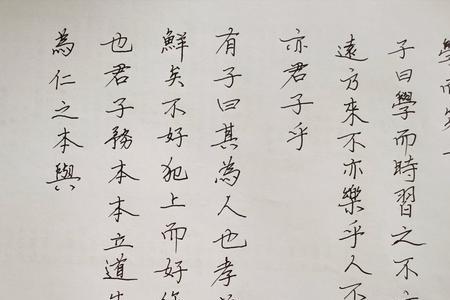 學而第一
子曰學而時習之不
遠方來不亦樂乎人不
亦君子乎
有子曰其為人也孝
鮮矣不好犯上而好
也君子務本本立道
為仁之本與